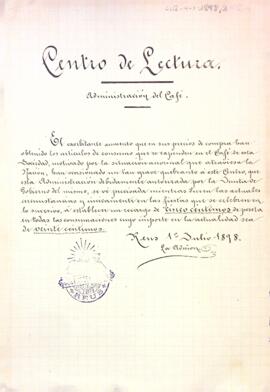 Centro de Lectura.
Administración del Café.
El exorbitante aumento que en sus precios de compra han
obtenido los artículos de consumo que se expenden en el Café de esta
Sociedad, motivado por la situación anormal que atraviesa la
Nación, han ocasionado un gran quebranto a este Centro, que
esta Administración debidamente autorizada por la Junta de
Gobierno del mismo, se vé precisada mientras duren las actuales
circunstancias y únicamente en las fiestas que se celebren en
lo sucesivo, a establecer un recargo de cinco céntimos de peseta
en todas las consumaciones cuyo importe en la actualidad sea
de veinte céntimos.
Reus 1º Julio 1898.
La Admón.
REUS